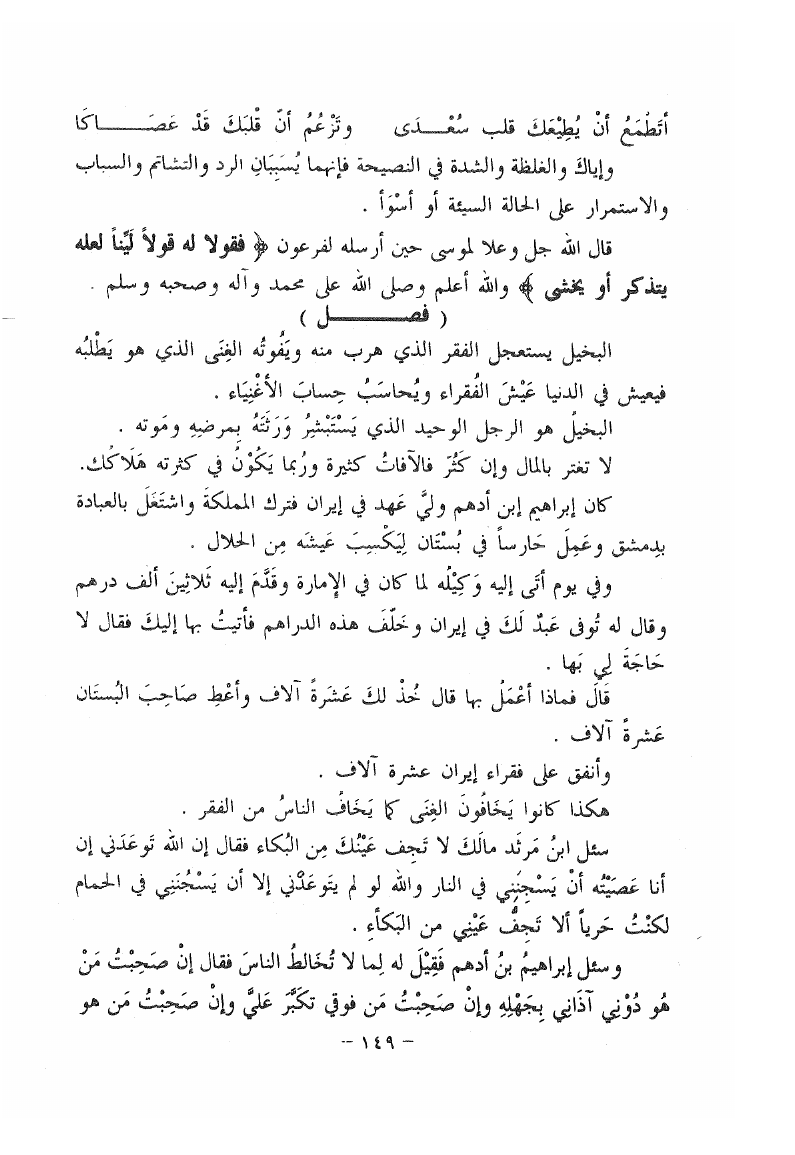 أتَطْمَعُ أنْ يُطِيْعَكَ قلب سُعْـــدَى    وتَزْعُمُ أنّ قْلبَكَ قَدْ عَصَـــــاكَا
وإياكَ والغلظة والشدة في النصيحة فإنهما يُسَبِبَانِ الرد والتشاتم والسباب
والاستمرار على الحالة السيئة أو أسْوَأ .
قال الله جل وعلا لموسى حين أرسله لفرعون ﴿ فقولا له قولاً لَيِّناً لعله
يتذكر أو يخشى ﴾ والله أعلم وصلى الله على محمد وآله وصحبه وسلم .
( فصـــــــل )
البخيل يستعجل الفقر الذي هرب منه ويَفُوتُه الغِنَى الذي هو يَطْلبُه
فيعيش في الدنيا عَيْشَ الفُقراء ويُحاسَبُ حِسابَ الأغْنِيَاء .
البخيلُ هو الرجل الوحيد الذي يَسْتَبْشِرُ وَرَثَتَهُ بِمرضهِ ومَوته .
لا تغتر بالمال وإن كَثُرَ فالآفاتُ كثيرة ورُبما يَكُوْنُ في كثرته هَلَاكُك.
كان إبراهيم إبن أدهم وليَّ عَهد في إيران فترك المملكةَ واشتَغَلَ بالعبادة
بدِمشق وعَمِلَ حَارساً في بُسْتَان لِيَكْسِبَ عَيشَه مِن الحلال .
وفي يوم أتَى إليه وَكِيْلُه لما كان في الإمارة وقَدَّمَ إليه ثَلاثِينَ ألف درهم
وقال له تُوفى عَبدٌ لَكَ في إيران وخَلَّفَ هذه الدراهم فأتيتُ بها إليكَ فقال لا
حَاجَةَ لِي بَها .
قَالَ فماذا أعْمَلُ بها قال خُذ لكَ عَشرَةً آلاف وأعْطِ صَاحِبَ البُستَان
عَشرةً آلاف .
وأنفق على فقراء إيران عشرة آلاف .
هكذا كانوا يَخَافُونَ الغِنَى كما يَخَافُ الناسُ من الفقر .
سئل ابنُ مَرثَد مالَكَ لا تَجِف عَيْنُكَ مِن البُكاء فقال إن الله تَوعَدَني إن
أنا عَصَيْتُه أنْ يَسْجِنَنِي في النار والله لو لم يتَوعَدَّني إلا أن يَسْجُنَنِي في الحمام
لكنْتُ حَرياً ألا تَجِفُّ عَيْنِي من البَكأءِ .
وسئل إبراهيمُ بنُ أدهم فَقِيْلَ له لِما لا تُخَالطُ الناسَ فقال إنْ صَحِبْتُ مَنْ
هُو دُوْنِي آذَانِي بِجَهْلِهِ وإنْ صَحِبْتُ مَن فوقي تكَبَّرَ عَليَّ وإنْ صَحِبْتُ مَن هو
– ١٤٩ –